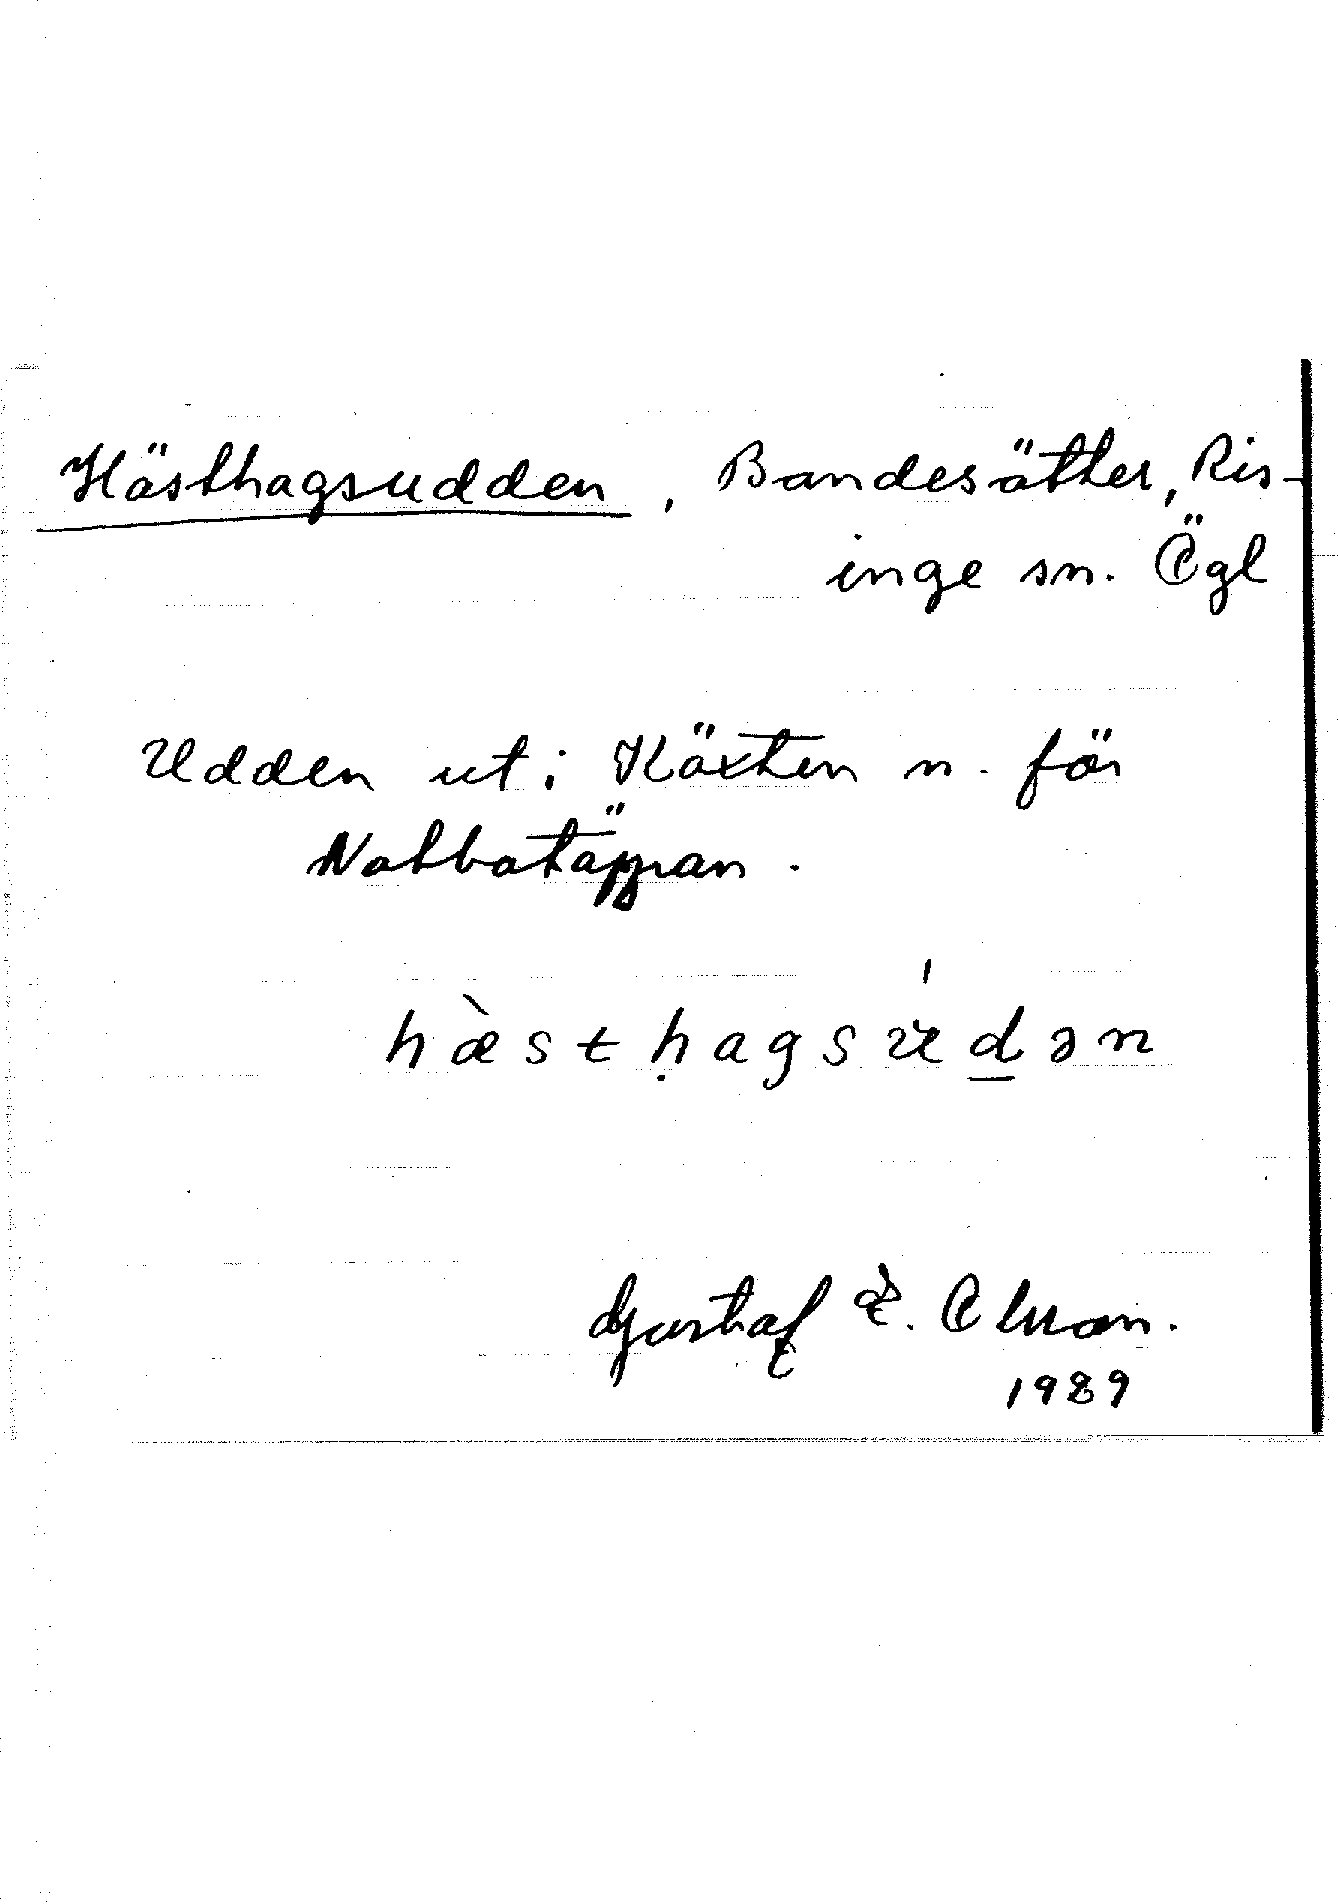 Hästhagsudden, Bandesätter, Ris-
inge sn. Ögl
Udden ut i Köxten n. för
Notbotäppan.
hæ̀stḥagsúd̲ən
Gustaf
1989